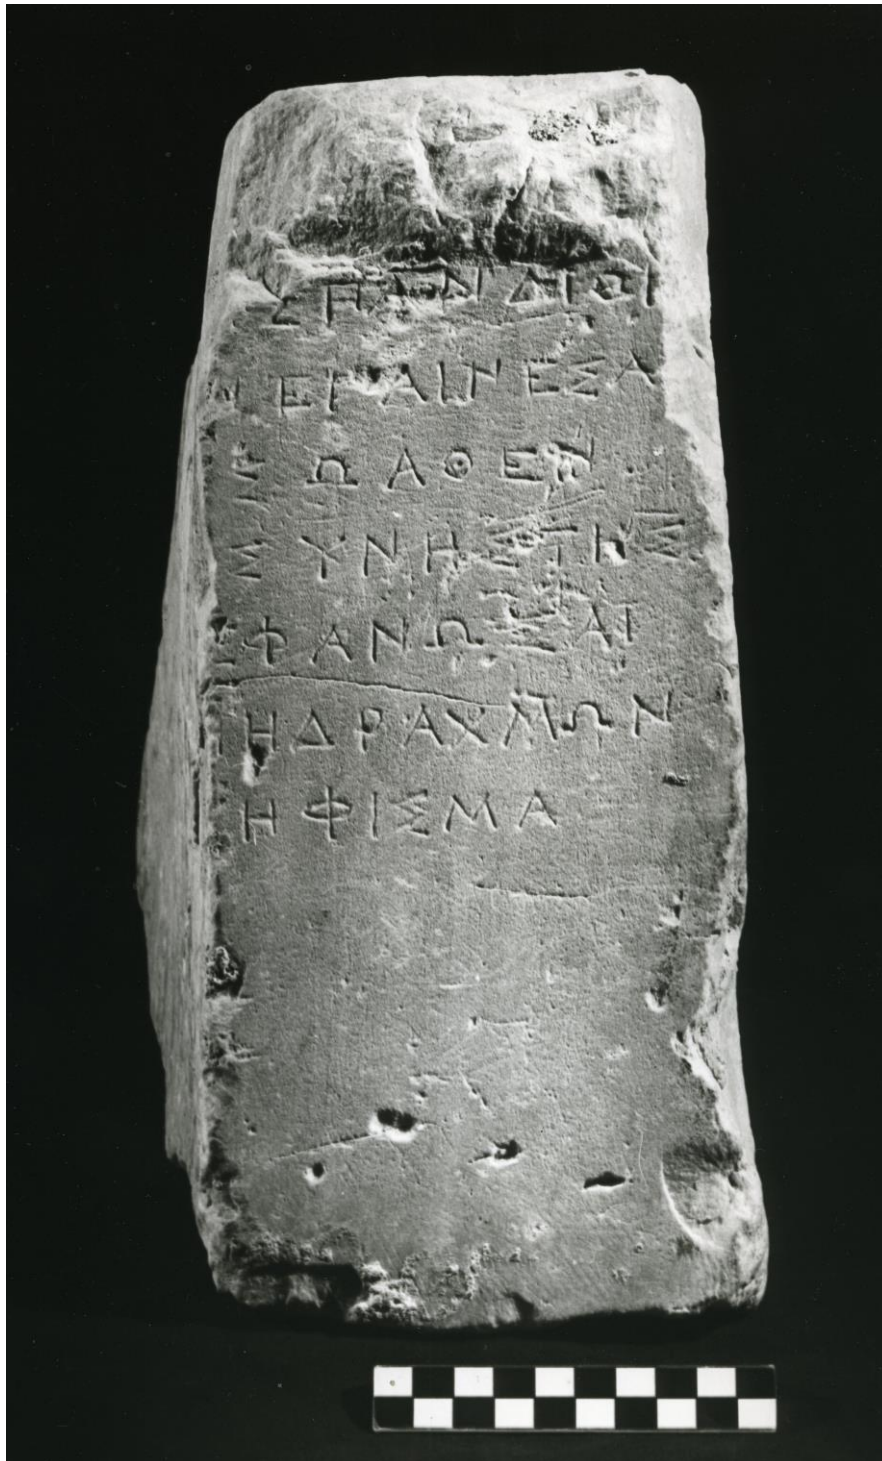 ΣΠΑΝΔΙΟΙ
ΕΠΑΙΝΕΣΑ
ΩΑΘΕΝ
ΣΥΝΗΣΤΗΣ
ΕΦΑΝΩΣΑΙ
ΗΔΡΑΧΜΩΝ
ΗΦΙΣΜΑ